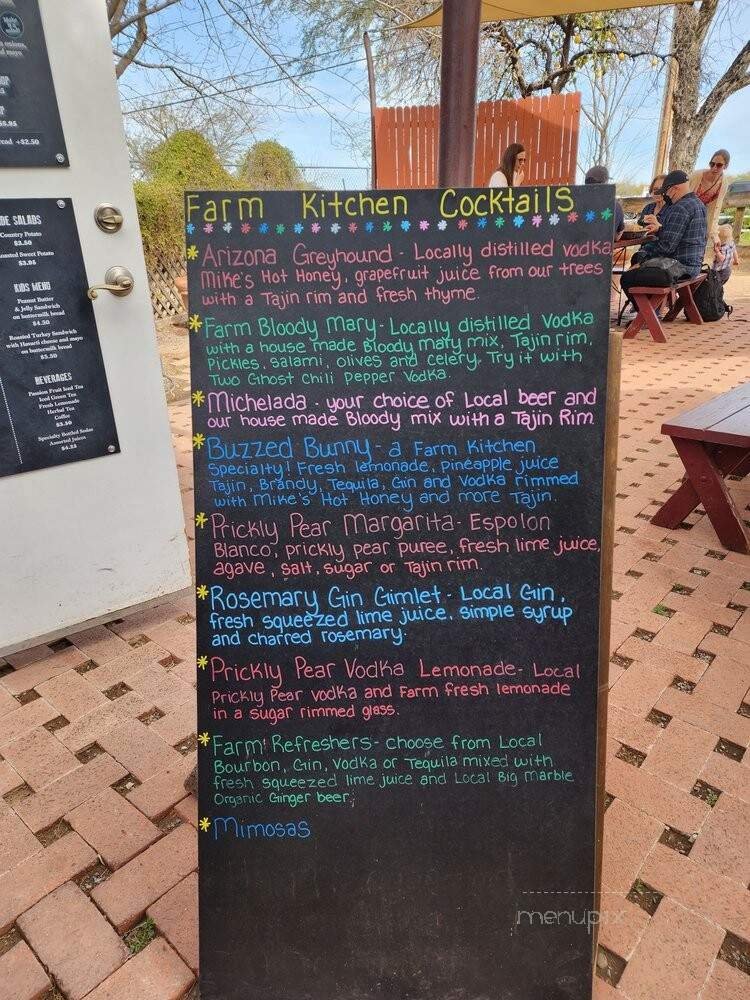 55.95
read +$2.50
DE SALADS
Country Potato
$3.50
oasted Sweet Potato
$3.95
KIDS MENU
Peanut Butter
& Jelly Sandwich
on buttermilk bread
$4.50
Roasted Turkey Sandwich
with Havarti cheese and mayo
on buttermilk bread
$5.50
BEVERAGES
Passion Fruit Iced Tea
Iced Green Tea
Fresh Lemonade
Herbal Tea
Coffee
$3.50
Specialty Bottled Sodas
Assorted Juices
$4.25
Farm Kitchen Cocktails
*Arizona Greyhound - Locally distilled vodka
Mike's Hot Honey, grapefruit juice from our trees
with a Tajin rim and fresh thyme
*Farm Bloody Mary - Locally distilled Vodka
with a house made Bloody mary mix, Tajin rim,
Pickles, salami, olives and celery, Try it with
Two Ghost chili pepper Vodka.
*Michelada - your choice of Local beer and
our house made Bloody mix with a Tajin Rim
*Buzzed Bunny - a Farm Kitchen
Specialty! Fresh lemonade, pineapple juice
Tajin, Brandy, Tequila, Gin and Vodka rimmed
with Mike's Hot Honey and more Tajin.
*Prickly Pear Margarita - Espolon
Blanco, prickly pear puree, fresh lime juice,
agave, salt, sugar or Tajin rim.
*Rosemary Gin Gimlet - Local Gin,
fresh squeezed lime juice, simple syrup
and charred rosemary.
*Prickly Pear Vodka Lemonade - Local
Prickly Pear vodka and Farm fresh lemonade
in a sugar rimmed glass.
*Farm! Refreshers - choose from Local
Bourbon, Gin, Vodka or Tequila mixed with
fresh squeezed lime juice and Local Big Marble
Organic Ginger beer.
*Mimosas
menupix